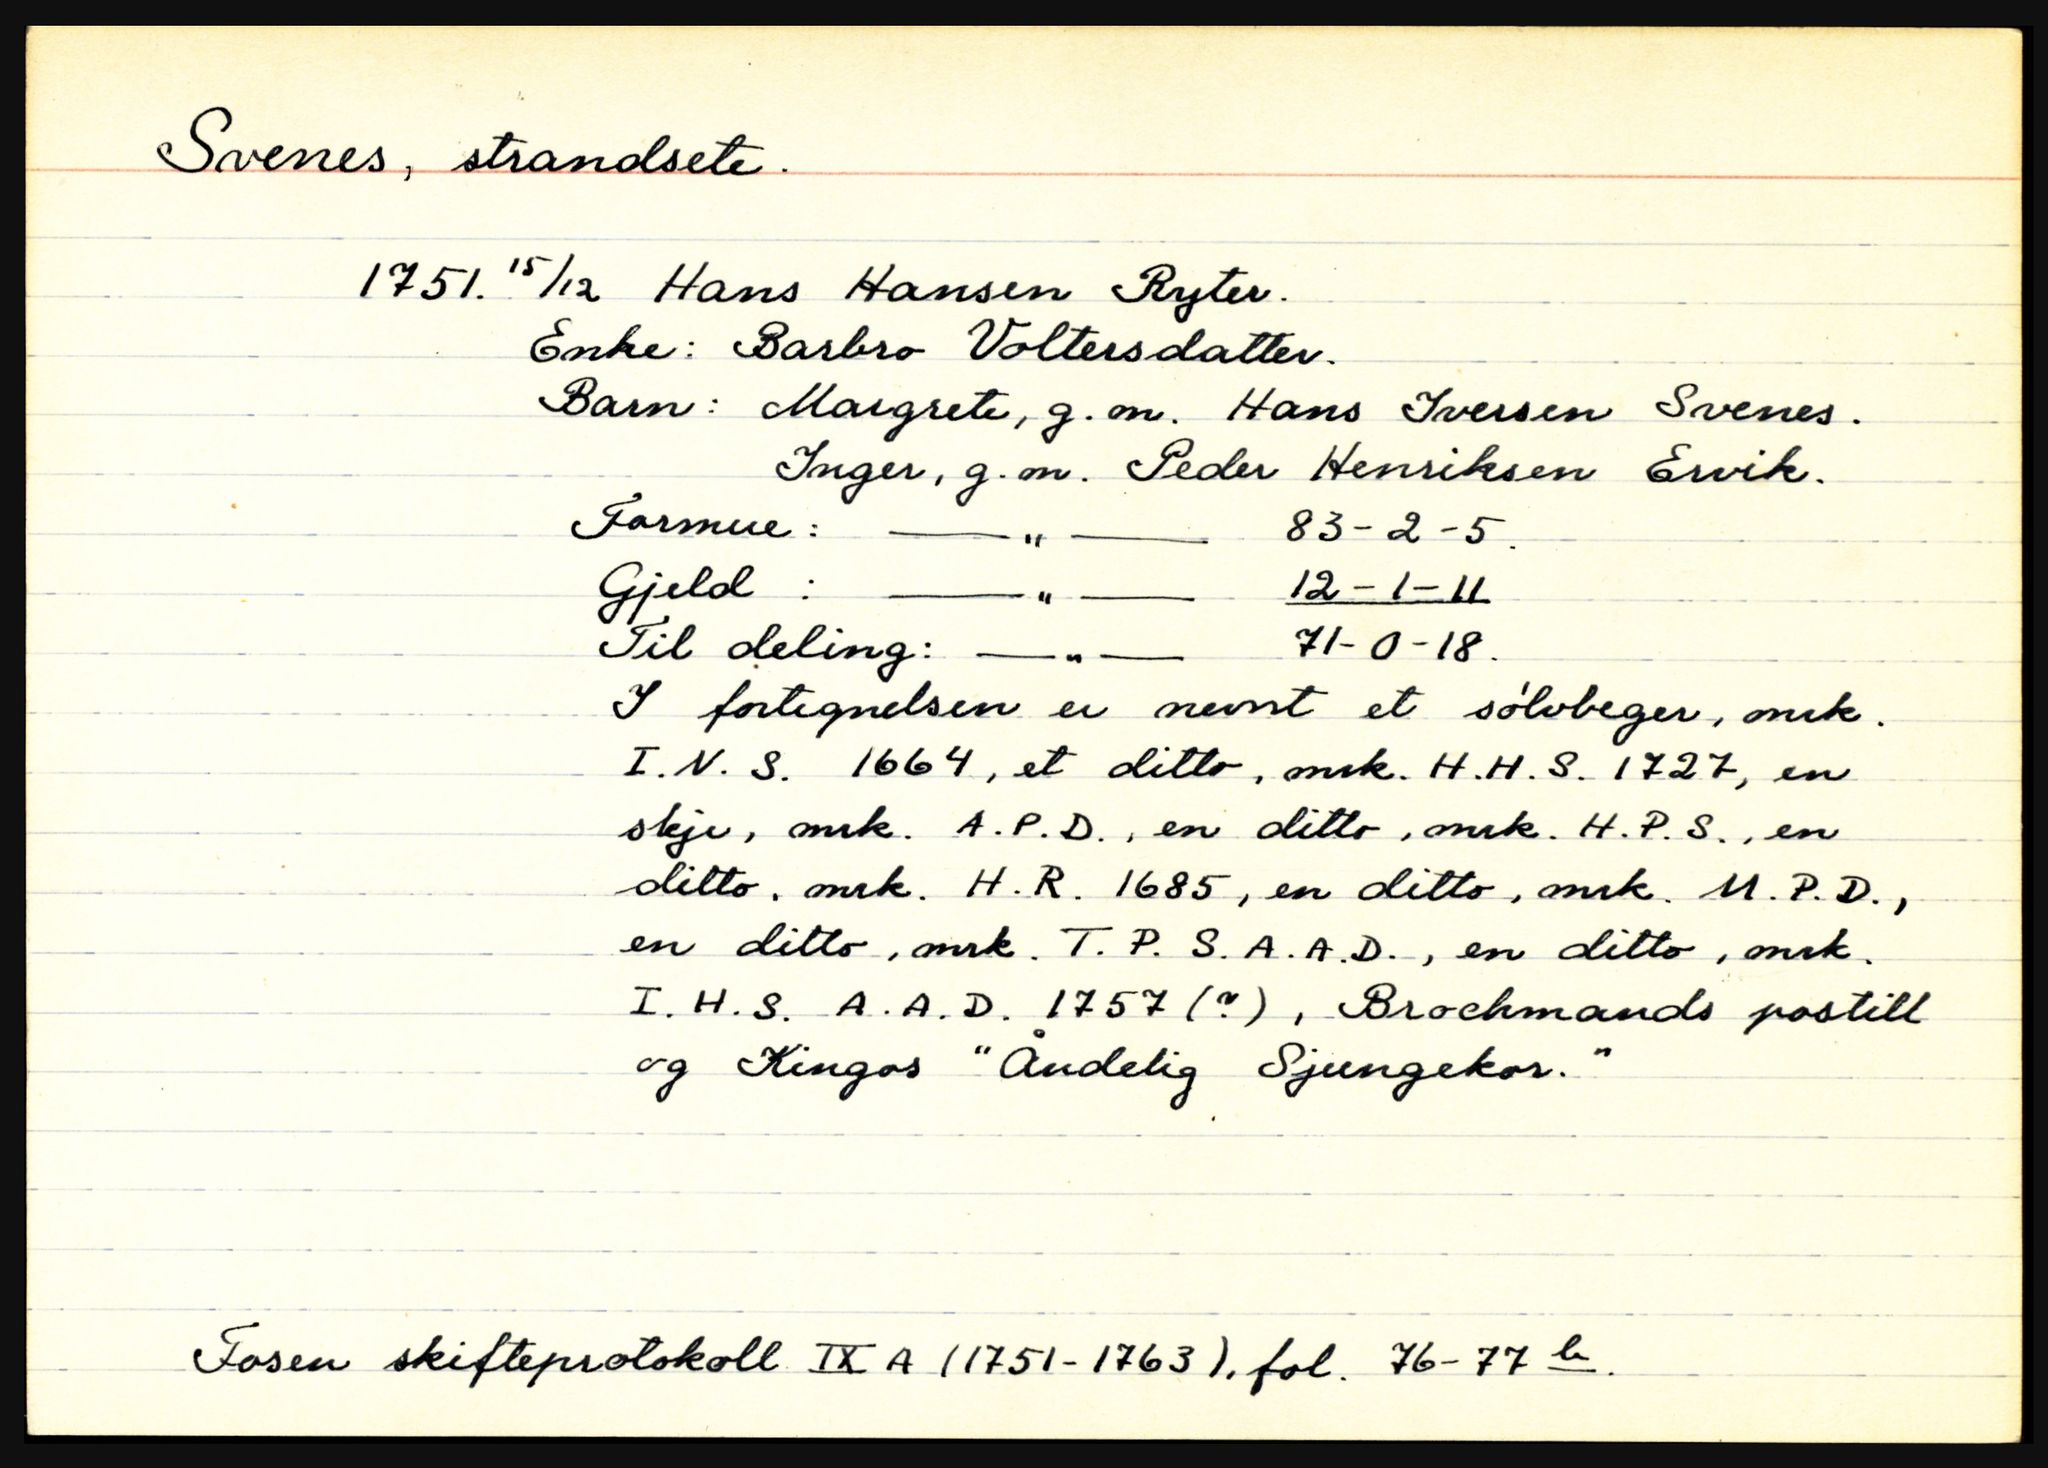 Svenes, strandsete.
1751. 15/12 Hans Hansen Ryter.
Enke: Barbro Voltersdatter.
Barn: Margrete, g.m. Hans Iversen Svenes.
Inger, g.m. Peder Henriksen Ervik.
Formue: —"— 83-2-5.
Gjeld : —"— 12-1-11
Til deling: —"— 71-0-18.
I fortegnelsen er nevnt et sölvbeger, mrk.
I.N.S. 1664, et ditto, mrk. H.H.S. 1727, en
skje, mrk. A.P.D., en ditto, mrk. H.P.S., en
ditto, mrk. H.R. 1685, en ditto, mrk. M.P.D.,
en ditto, mrk. T.P.S.A.A.D., en ditto, mrk.
I.H.S. A.A.D. 1757 (?), Brochmands postill
og Kingos "Åndelig Sjungekor."
Fosen skifteprotokoll IX A (1751-1763), fol. 76-77 b.